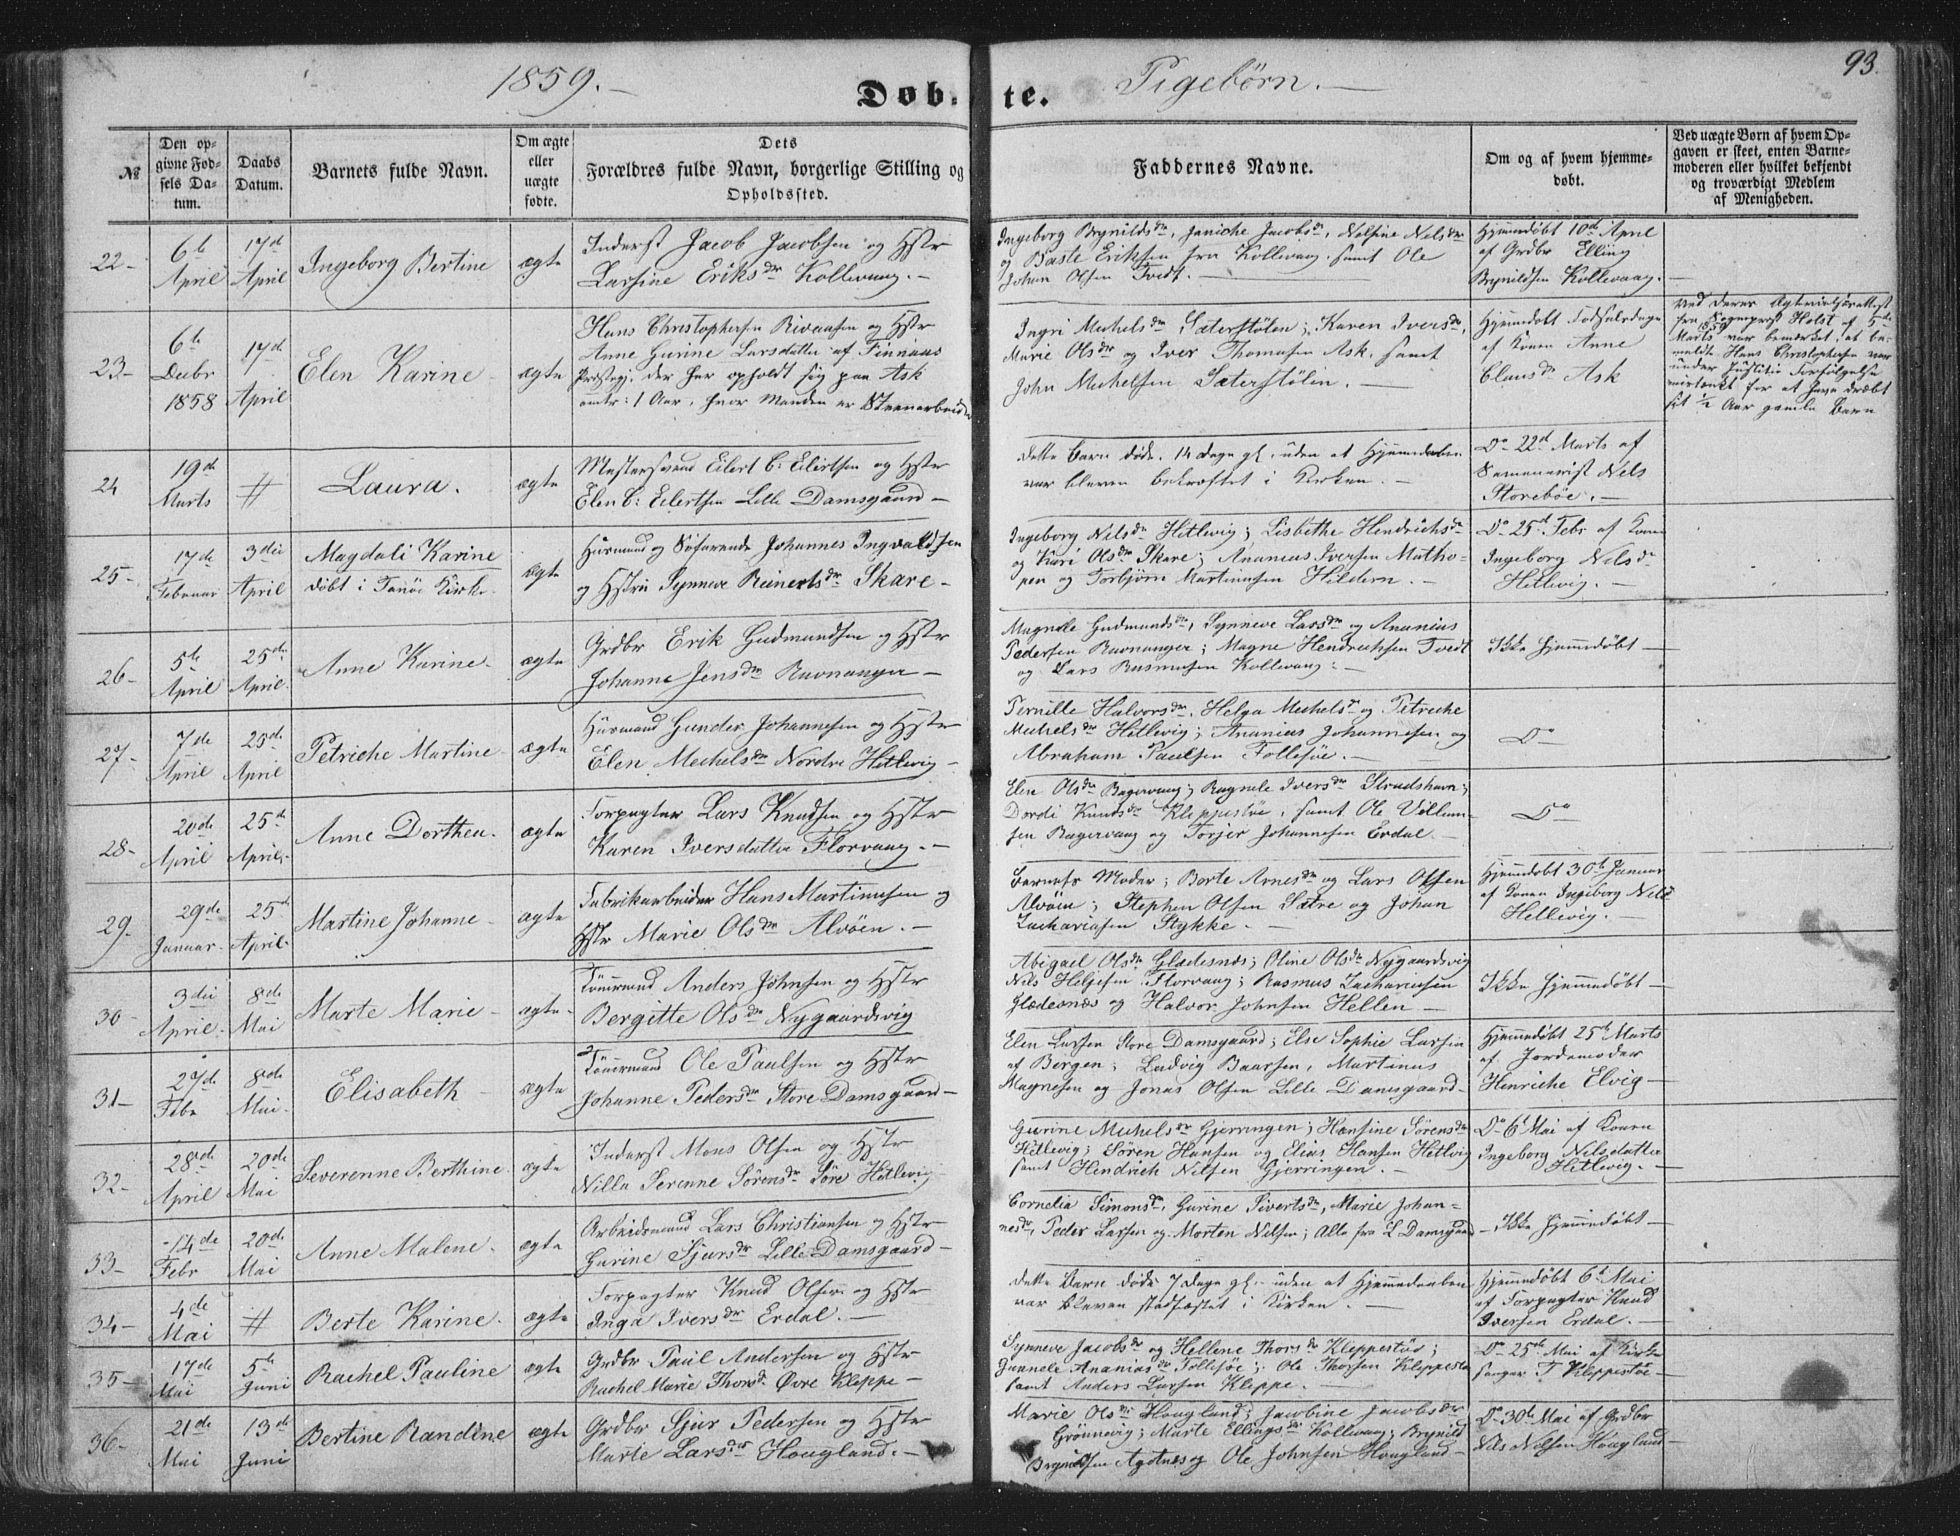 1859.–
Døbte.
Pigebørn.–
93.
№
Den opgivne Fødsels Datum.
Daabs Datum.
Barnets fulde Navn.
Om ægte eller uægte fødte.
Dets Forældres fulde Navn, borgerlige Stilling og Opholdssted.
Faddernes Navne.
Om og af hvem hjemmedøbt.
Ved uægte Børn af hvem Opgaven er skeet, enten Barnemoderen eller hvilket bekjendt og troværdigt Medlem af Menigheden.
22- 6te April 17de April Ingeborg Bertine ægte
Inderst Jacob Jacobsen og Hstr
Larsine Eriksdr Kollevaag.–
Ingeborg Brynildsdr, Janiche Jacobsdr, Nelsine Nelsdr
og Baste Eriksen fra Kollevaag, samt Ole
Johan Olsen Tvedt.–
Hjemmdöbt 10de April
af Grdbr Elling
Brynildsen Kollevaag.–
23- 6te Decbr 1858 17de April Elen Karine ægte
Hans Christophersen og Hstr
Anne Gurine Larsdatter af Finnaas
Præstegj. der her opholdt sig paa Ask
omtr: 1 Aar, hvor Manden er Steenarbeider
Ingri Michelsdr Sæterstølen; Karen Iversdr,
Marie Olsdr og Iver Thomasen Ask, samt
John Michelsen Sæterstølen.–
Hjemmdöbt Fødselsdagen
af Konen Anne
Clausdr Ask
fra Sogneprest Holst af 5te
Marts 1859 var bemærket at be-
meldte Hans Christophersen var
under Justits Forfølgelse
mistænkt for at have dræbt
sit ½ Aar gamle Barn
24 19de Marts # Laura. ægte
Mestersvend Eilert C: Eilertsen og Hstr
Elen C: Eilertsen Lille Damsgaard–
Dette Barn døde 14 Dage gl. uden at Hjemmedaaben
var bleven bekræftet i Kirken.–
Do 22de Marts af
Seminarist Nils
Storebøe.–
25- 17de Februar 3die April Magdali Karine
døbt i Kirke ægte
Huusmand og Søfarende Johannes Ingvaldsen
og Hstru Synneve Reinertsdr Skare–
Ingeborg Nilsdr Hetlevig; Lisbethe Hendrichsdr
og Kari Olsdr Skare; Ananias Iversen Matho-
pen og Torbjørn Martinusen Hildern.–
Do 25de Febr af Konen
Ingeborg Nilsdr
Hetlevig.–
26- 5te April 25de April. Anne Karine- ægte
Grdbr Erik Gudmundsen og Hstr
Johanne Jensdr Ravnanger–
Magnele Gudmundsdr, Synneve Larsdr og Ananias
Pedersen Ravnanger; Magne Hendrichsen Tvedt
og Lars Rasmusen Kollevaag.–
Ikke Hjemmdøbt–
27- 7de April 25de April Petriche Martine- ægte
Huusmand Gunder Johannesen og Hstr
Elen Michelsdr Nordre Hetlevig–
Pernille Halvorsdr, Helga Michelsdr og Petriche
Michelsdr Hetlevig; Ananias Johannesen og
Abraham Paulsen Follesøe.–
Do
28- 20de April 25de April. Anne Dorthea. ægte
Forpagter Lars Knudsen og Hstr
Karen Iversdatter Florvaag.–
Elen Olsdr Bagervaag; Ragnele Iversdr Strudshavn;
Dordi Knudsdr Kleppestøe, samt Ole Villum-
sen Bagervaag og Torjer Johannesen Erdal.–
Do
29. 29de Januar. 25de April. Martine Johanne- ægte
Fabrikarbeider Hans Martinusen og
Hstr Marie Olsdr Alvøen.–
Barnets Moder; Borte Arnesdr og Lars Olsen
Alvøen; Stephen Olsen Sætre og Johan
Zachariasen Stykke.–
Hjemmdöbt 30te Januar
af Konen Ingeborg Nilsdr
Hetlevig.–
30- 3die April. 8de Mai Marte Marie- ægte-
Tömmermand Anders Johnsen og Hstr
Bergitte Olsdr Nygaardsvig
Abigael Olsdr Gladesnæs; Oline Olsdr Nygaardsvig
Nils Helgesen Florvaag; Rasmus Zachariasen
Gladesnæs og Halvor Johnsen Hellen–
Ikke Hjemmedøbt–
31- 27de Febr 8de Mai. Elisabeth- ægte
Tömmermand Ole Paulsen og Hstr
Johanne Pedersdr Store Damsgaard–
Elen Larsen Store Damsgaard; Else Sophie Larsen
af Bergen; Ludvig Baarsen, Martinus
Magnesen og Jonas Olsen Lille Damsgaard–
Hjemmedøbt 25de Marts
af Jordemoder
Henriche Elvig–
32- 28de April 20de Mai Severenne Berthine. ægte
Inderst Mons Olsen og Hstr
Nilla Serenne Sørensdr Søre Hetlevig
Gurine Michelsdr Gjerringen; Hansine Sørensdr
Hetlevig; Søren Hansen og Elias Hansen Hetlevig
samt Hendrich Nilsen Gjerringen.–
Do 6te Mai af Konen
Ingeborg Nilsdatter
Hetlevig.–
33- 14de Febr 20de Mai Anne Malene. ægte
Arbeidsmand Lars Christiansen og Hstr
Gurine Sjursdr Lille Damsgaard–
Cornelia Simonsdr, Gurine Sivertsdr, Marie Johan-
nesdr, Peder Larsen og Morten Nilsen; Alle fra L. Damsgaard
– Ikke Hjemmedøbt–
34- 4de Mai # Berte Karine. ægte
Forpagter Knud Olsen og Hstr
Inga Iversdr Erdal.–
Dette Barn døde 7 Dage gl. uden at Hjemmedaaben
var bleven stadfæstet i Kirken.–
Hjemmedøbt 6te Mai
af Forpagter Knud
Iversen Erdal.–
35- 17de Mai 5te Juni Rachel Pauline ægte
Grdbr Paul Andersen og Hstr
Rachel Marie Thorsdr Øvre Kleppe–
Synneve Jacobsdr og Hellene Thorsdr Kleppestøe;
Gunnele Ananiasdr Follesøe; Ole Thorsen Kleppestø
samt Anders Larsen Kleppe.–
Do 25de Mai af Kirke
sanger T Kleppestøe–
36- 21de Mai 13de Juni Bertine Randine ægte
Grdbr Sjur Pedersen og Hstr
Marte Larsdr Hougland.–
Marie Olsdr Hougland; Jacobine Jacobsdr
Grönnevig; Marte Ellingsdr Kollevaag; Brynild
Brynildsen Agotnes og Ole Johnsen Hougland–
Do 30te Mai af Grdbr
Nils Nilsen Hougland–